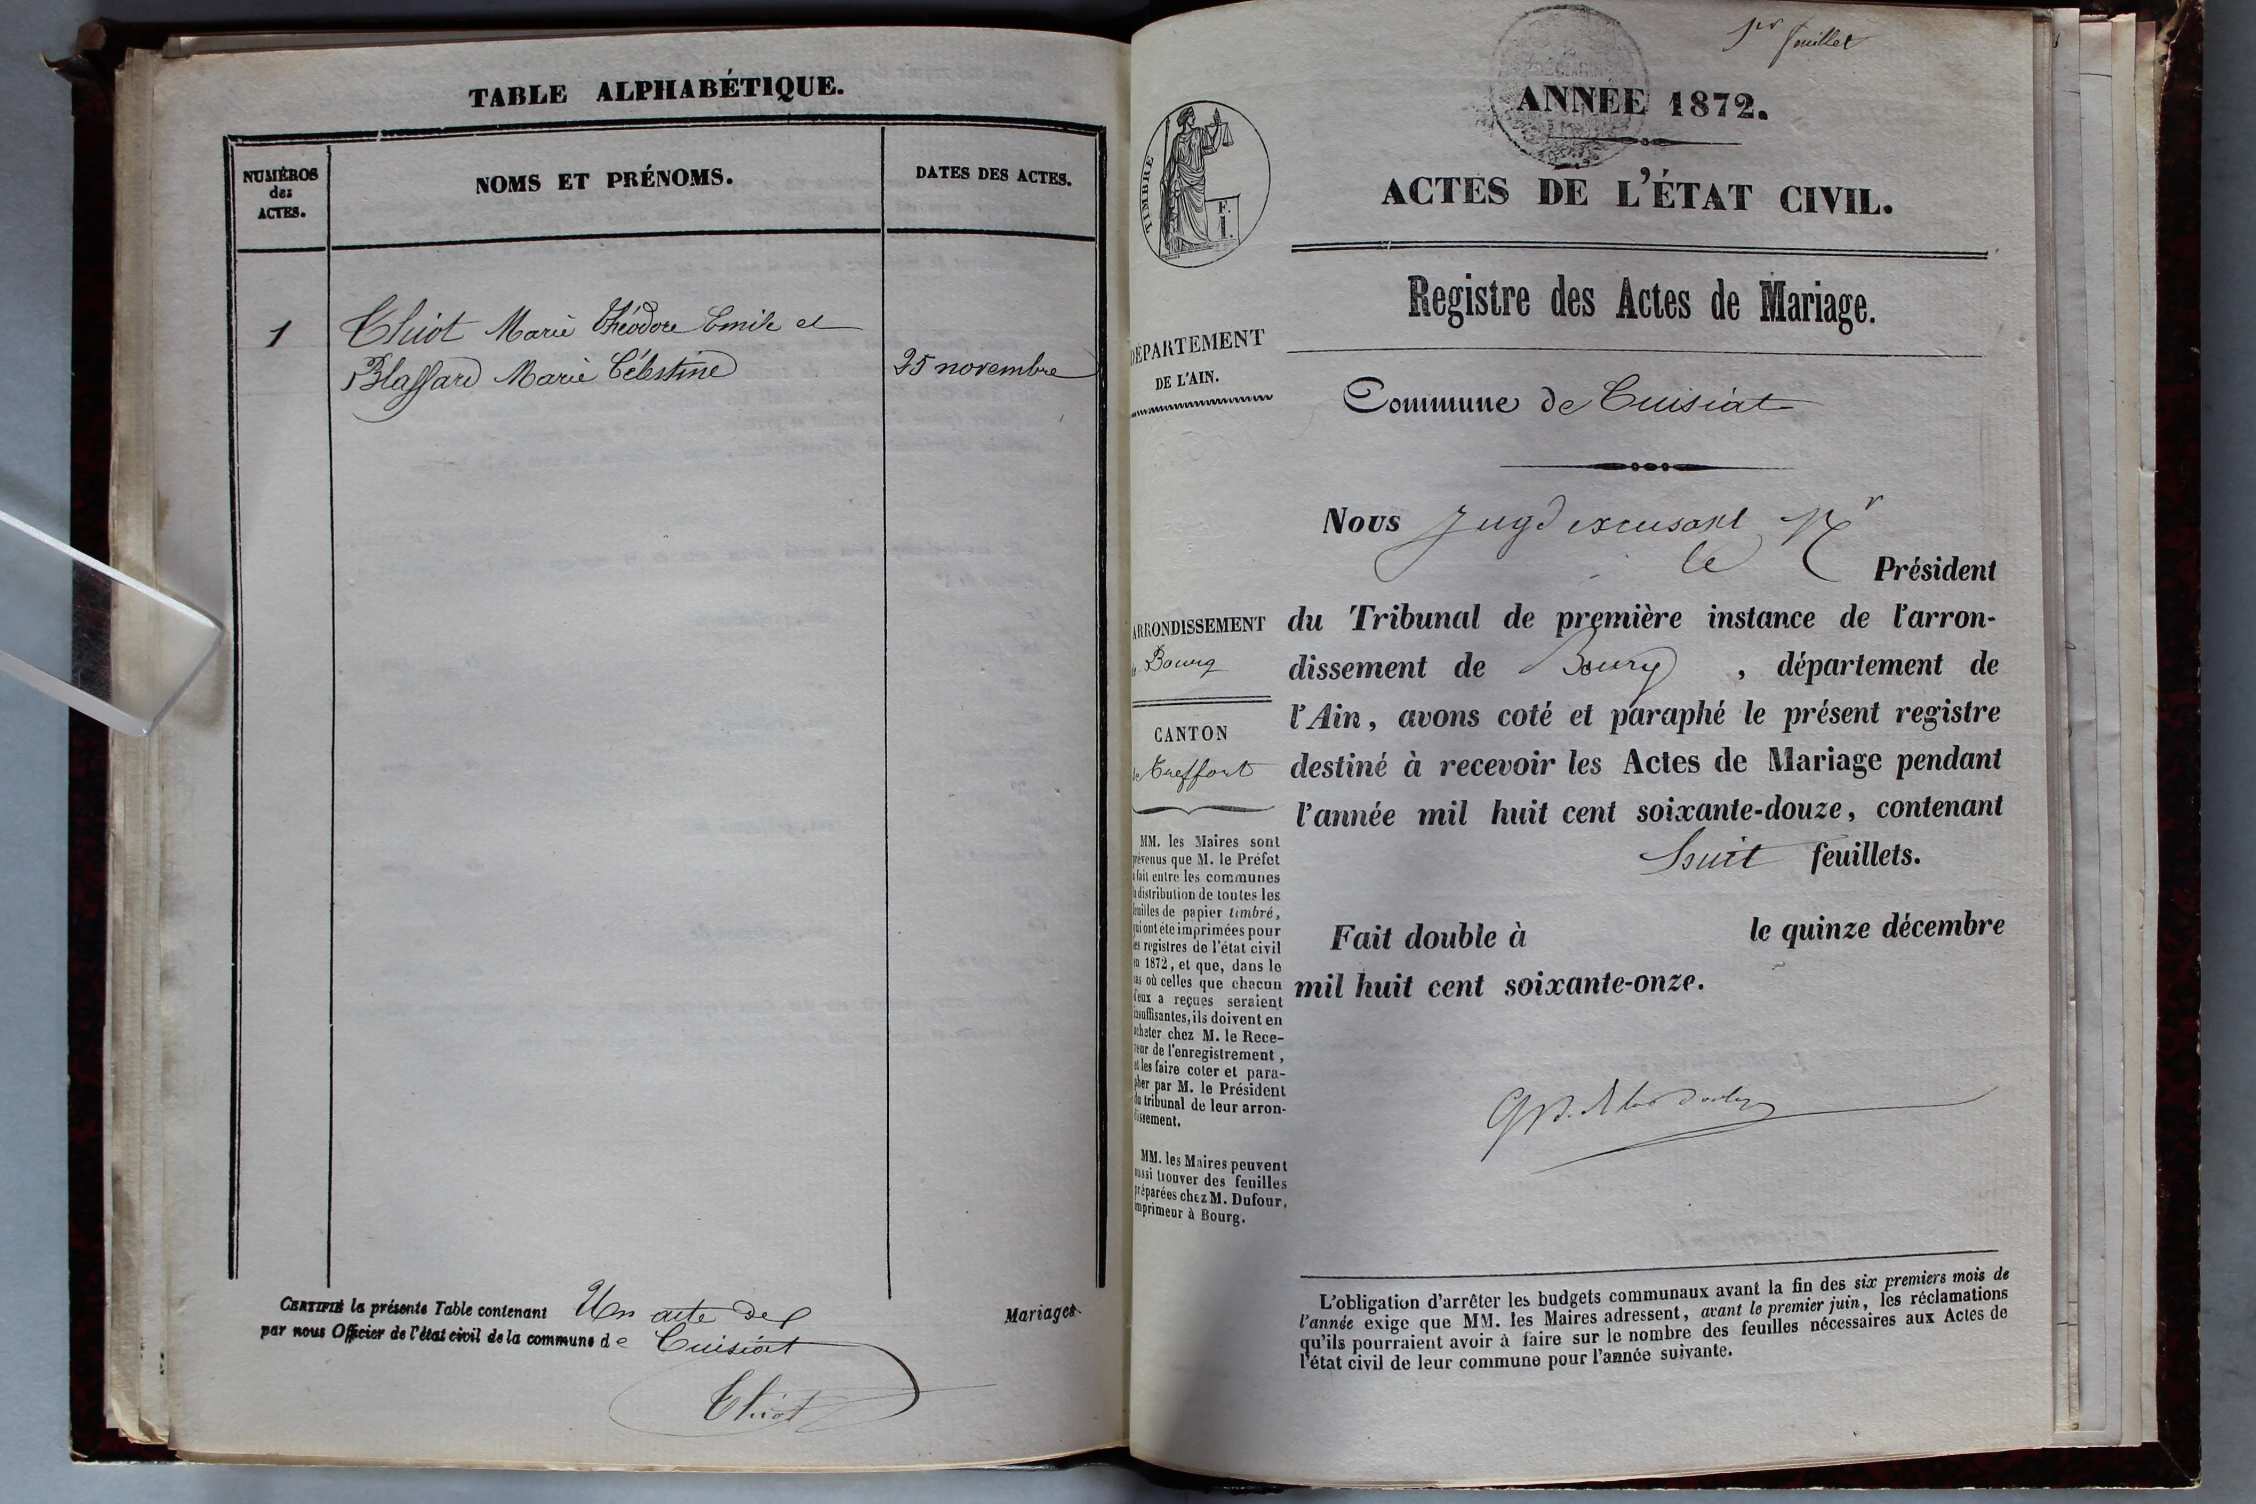 TABLE ALPHABÉTIQUE.
NUMÉROS
des
ACTES.
NOMS ET PRÉNOMS.
DATES DES ACTES.
1
Thiot Marie Théodore Emile et
Blassard Marie Célestine
25 novembre
CERTIFIÉ la présente Table contenant Un acte de Mariages
par nous Officier de l'état civil de la commune de Cuisiat
Thiot
1er feuillet
ANNÉE 1872.
ACTES DE L'ÉTAT CIVIL.
TIMBRE
F.
1.
Registre des Actes de Mariage.
DÉPARTEMENT
DE L'AIN.
Commune de Cuisiat
Nous
le Président
du Tribunal de première instance de l'arron-
dissement de Bourg, département de
l'Ain, avons coté et paraphé le présent registre
destiné à recevoir les Actes de Mariage pendant
l'année mil huit cent soixante-douze, contenant
huit feuillets.
Fait double à le quinze décembre
mil huit cent soixante-onze.
ARRONDISSEMENT
de Bourg
CANTON
de Treffort
MM. les Maires sont
prévenus que M. le Préfet
a fait entre les communes
la distribution de toutes les
feuilles de papier timbré,
qui ont été imprimées pour
les registres de l'état civil
en 1872, et que, dans le
cas où celles que chacun
d'eux a reçues seraient
insuffisantes, ils doivent en
acheter chez M. le Rece-
veur de l'enregistrement,
et les faire coter et para-
pher par M. le Président
du tribunal de leur arron-
dissement.
MM. les Maires peuvent
aussi trouver des feuilles
préparées chez M. Dufour,
imprimeur à Bourg.
L'obligation d'arrêter les budgets communaux avant la fin des six premiers mois de
l'année exige que MM. les Maires adressent, avant le premier juin, les réclamations
qu'ils pourraient avoir à faire sur le nombre des feuilles nécessaires aux Actes de
l'état civil de leur commune pour l'année suivante.